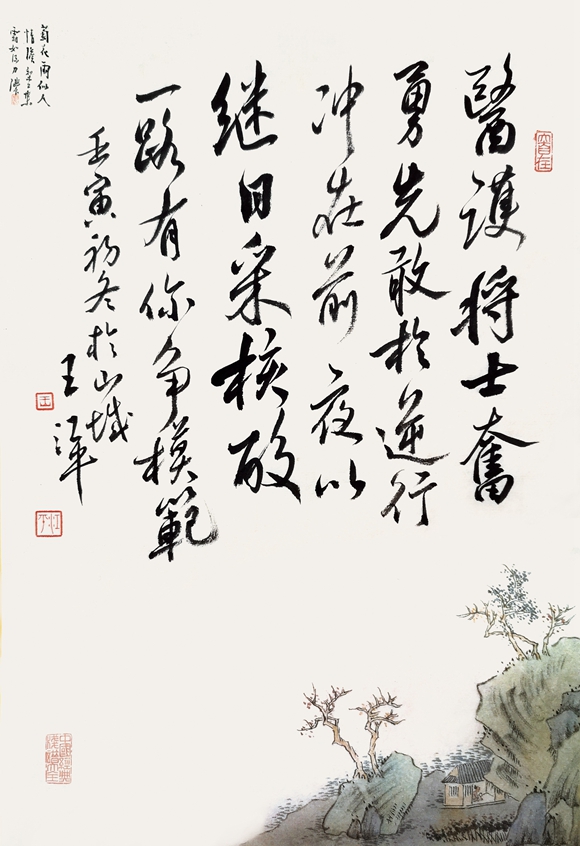 醫護将士奮
勇先敢於逆行
冲在前夜以
继日采核酸
一路有你争模範
壬寅初冬於山城
王